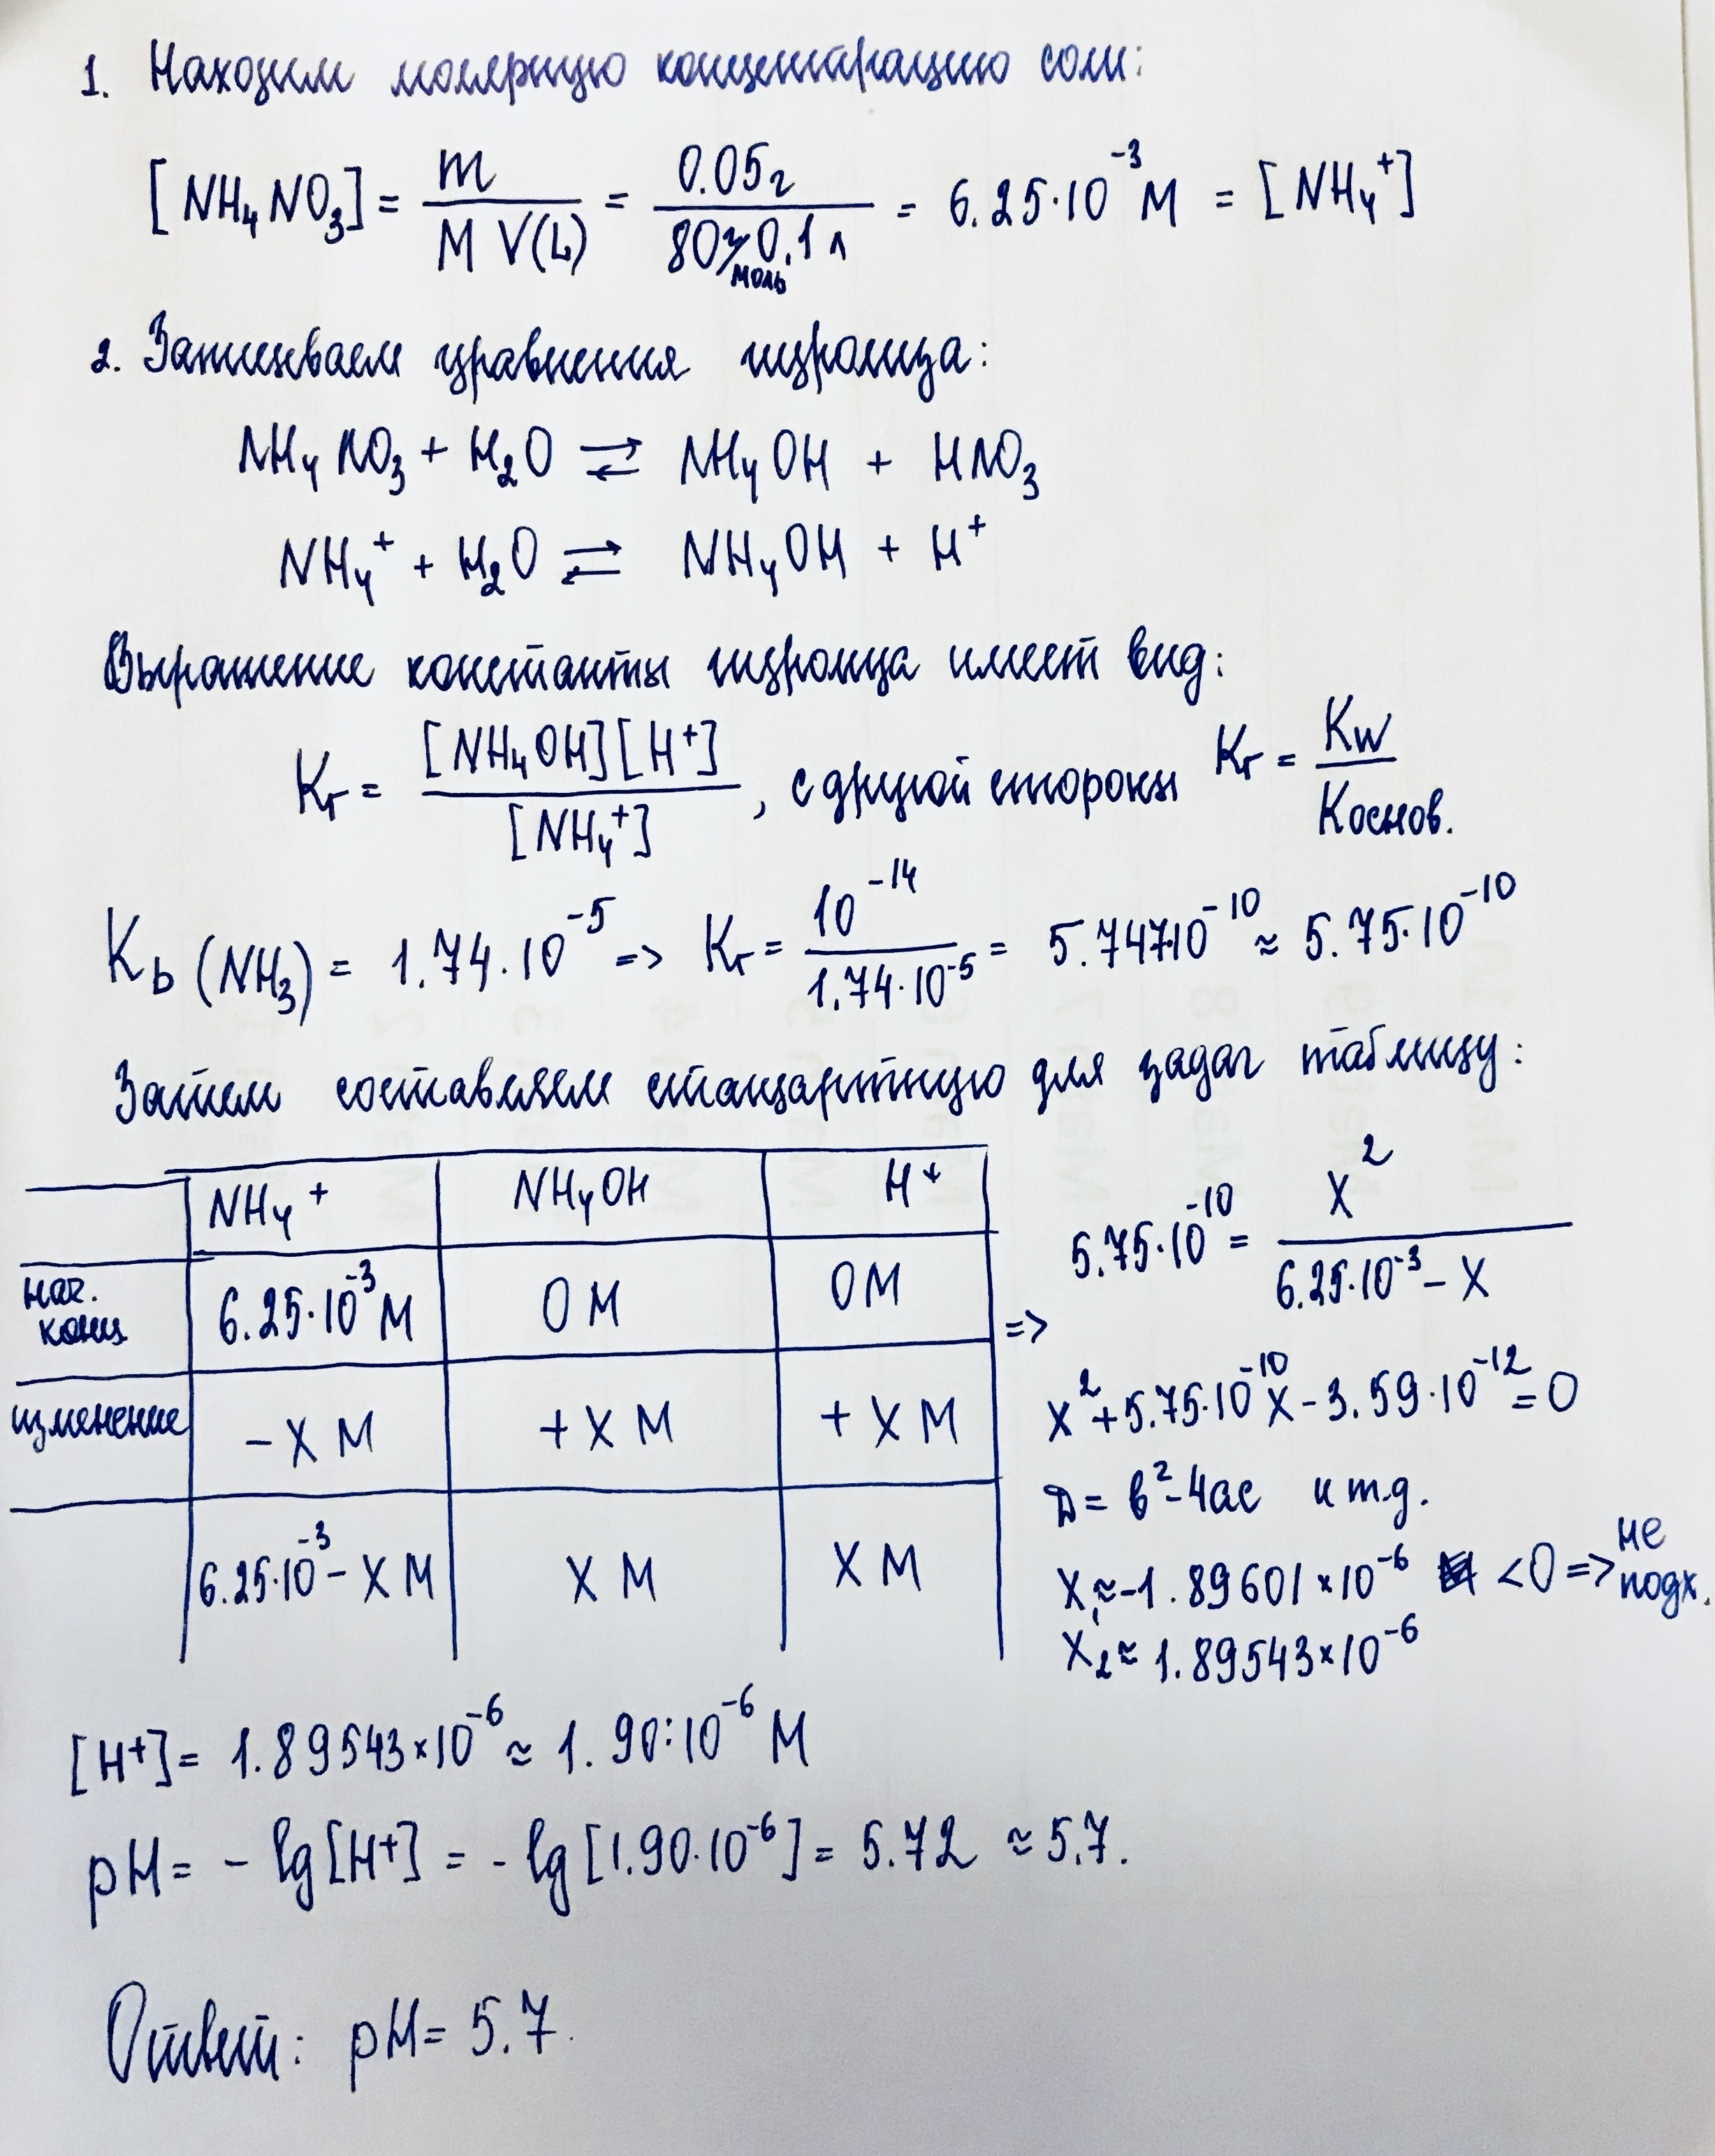 1. Находим молярную концентрацию соли:
[NH4NO3] = m / M V(L) = 0.05г / 80г/моль·0.1л = 6.25·10^-3 M = [NH4^+]
2. Записываем уравнения гидролиза:
NH4NO3 + H2O ⇄ NH4OH + HNO3
NH4^+ + H2O ⇄ NH4OH + H^+
Выражение константы гидролиза имеет вид:
Kг = [NH4OH][H^+] / [NH4^+], с другой стороны Kг = Kw / Kоснов.
Kb (NH3) = 1.74·10^-5 => Kг = 10^-14 / 1.74·10^-5 = 5.747·10^-10 ≈ 5.75·10^-10
Затем составляем стандартную для задач таблицу:
NH4^+ NH4OH H^+
нач. конц. 6.25·10^-3 M 0 M 0 M
изменение - X M + X M + X M
6.25·10^-3 - X M X M X M
=> 5.75·10^-10 = X^2 / 6.25·10^-3 - X
X^2 + 5.75·10^-10 X - 3.59·10^-12 = 0
D = b^2 - 4ac и т.д.
X1 ≈ -1.89601×10^-6 < 0 => не подх.
X2 ≈ 1.89543×10^-6
[H^+] = 1.89543×10^-6 ≈ 1.90·10^-6 M
pH = - lg[H^+] = - lg[1.90·10^-6] = 5.72 ≈ 5.7.
Ответ: pH = 5.7.